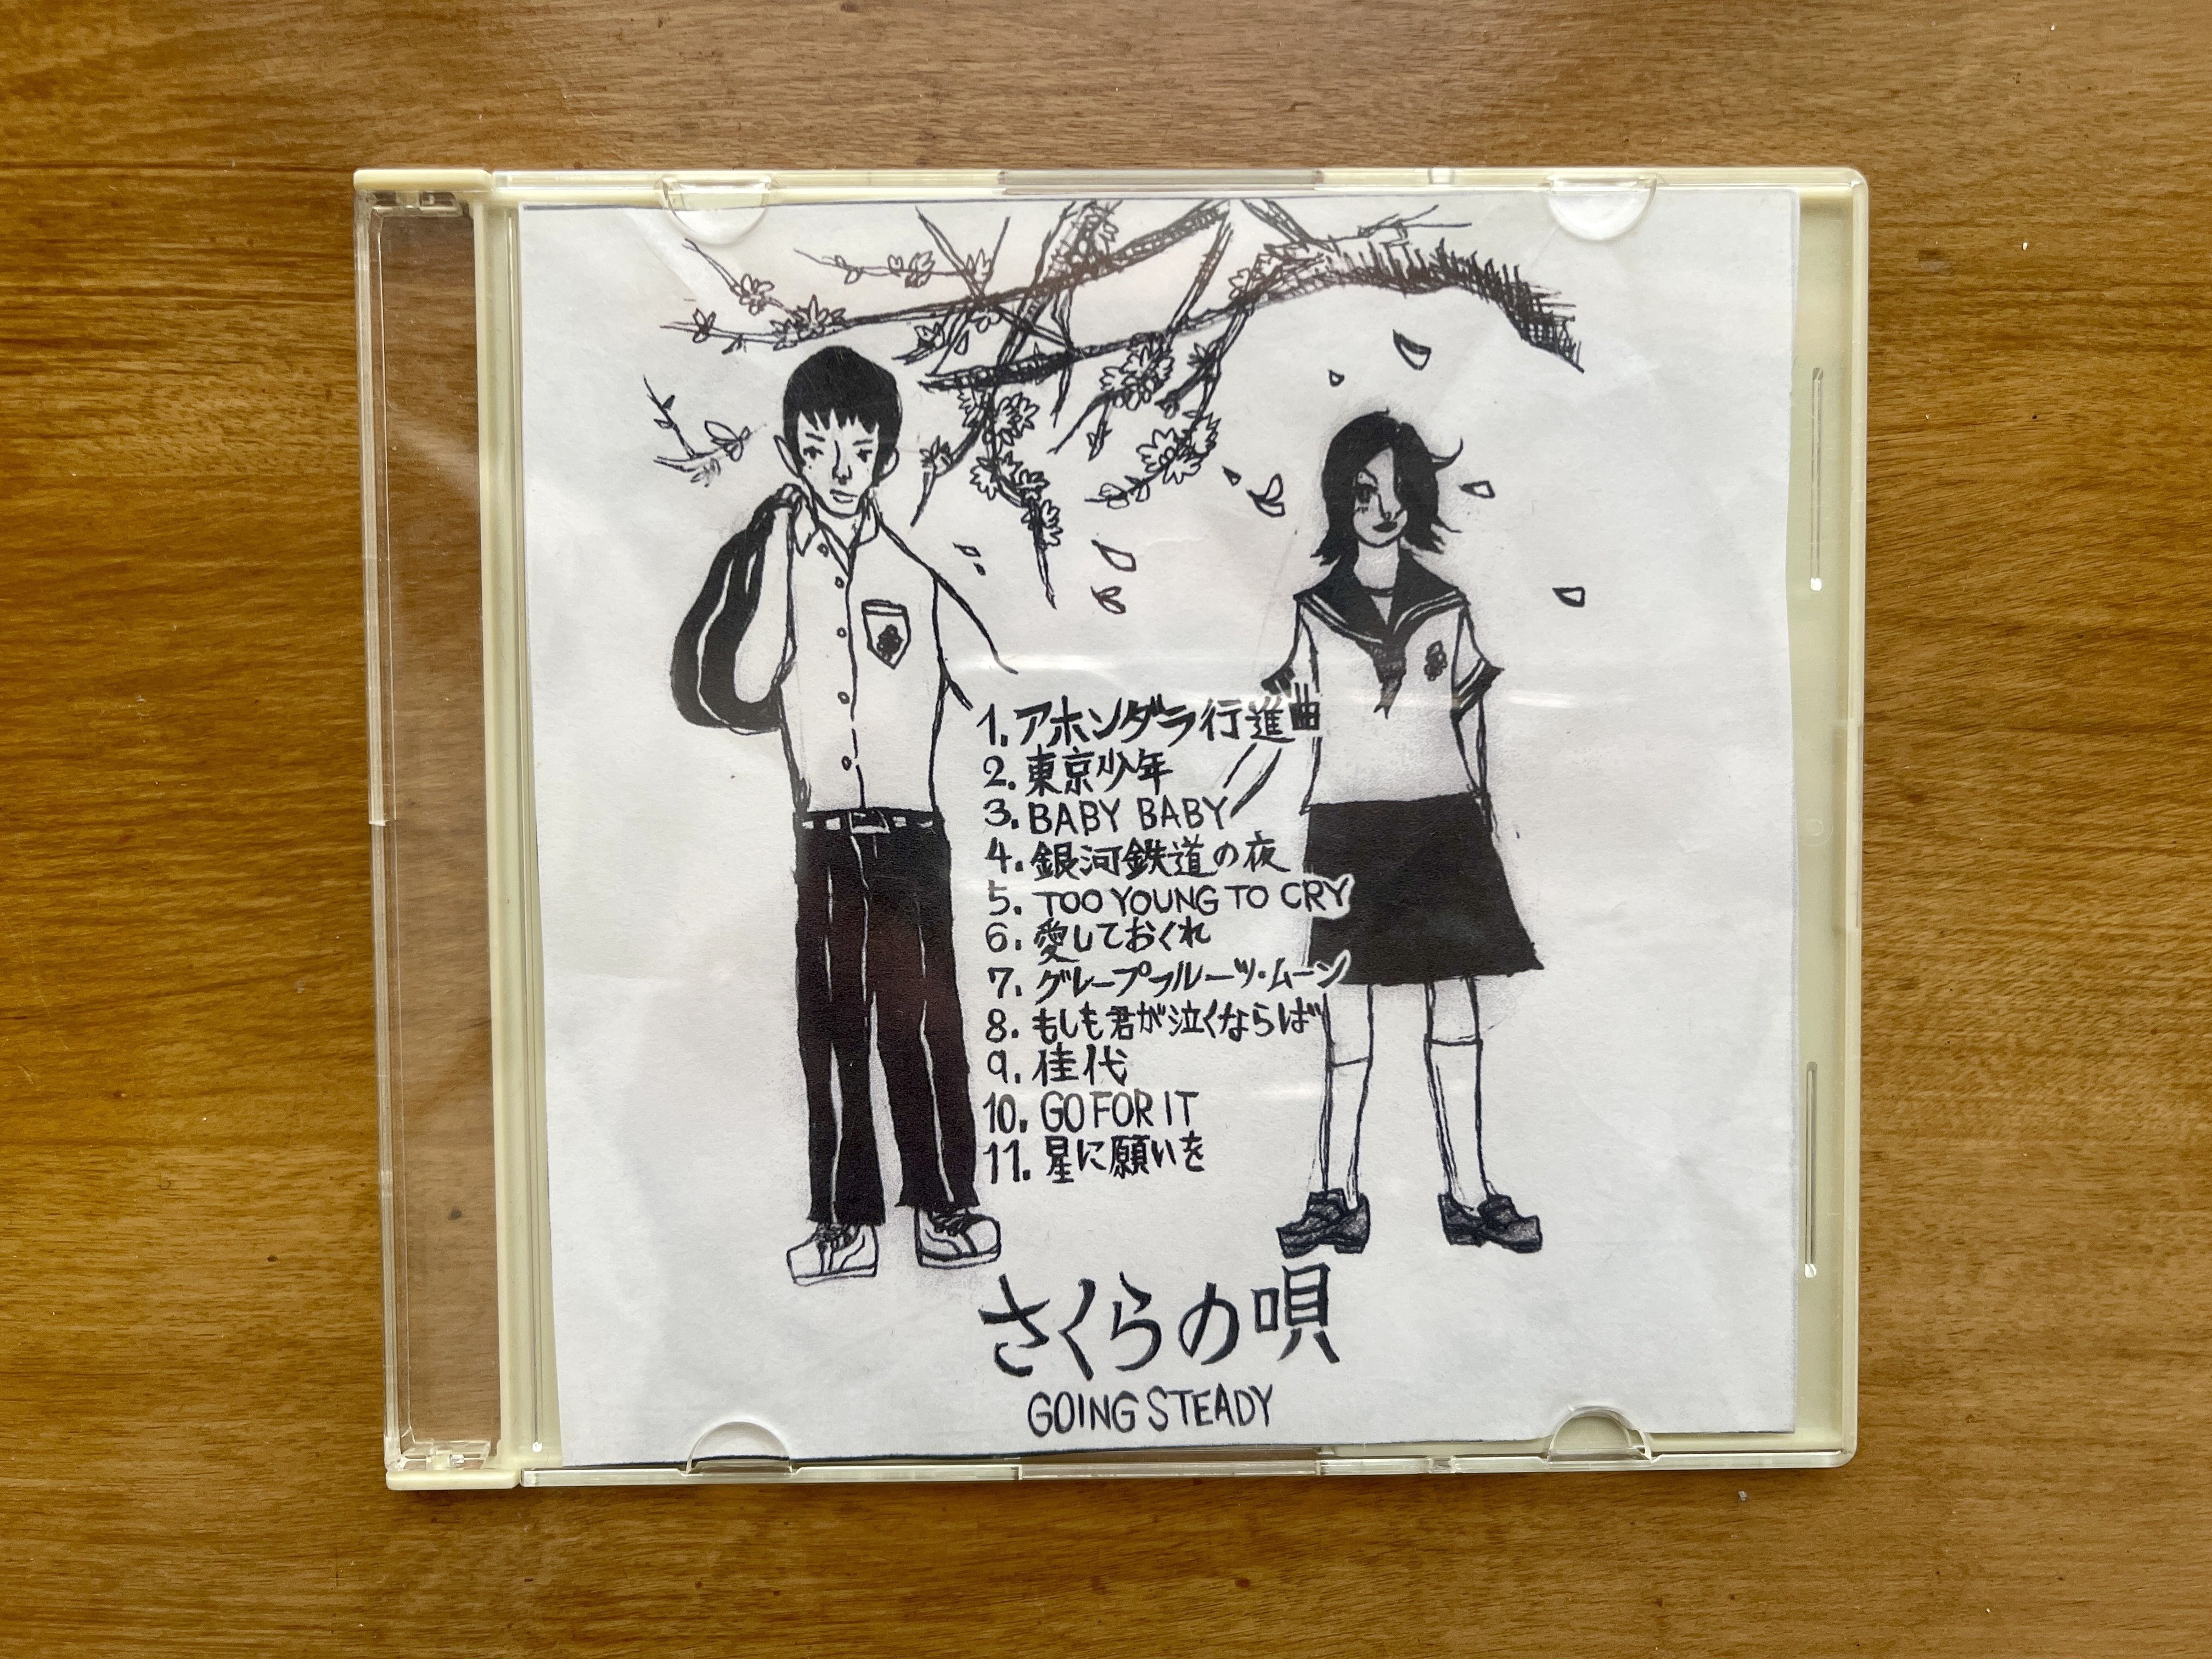 1. アホンダラ行進曲
2. 東京少年
3. BABY BABY
4. 銀河鉄道の夜
5. TOO YOUNG TO CRY
6. 愛しておくれ
7. グレープフルーツ・ムーン
8. もしも君が泣くならば
9. 佳代
10. GO FOR IT
11. 星に願いを
さくらの唄
GOING STEADY